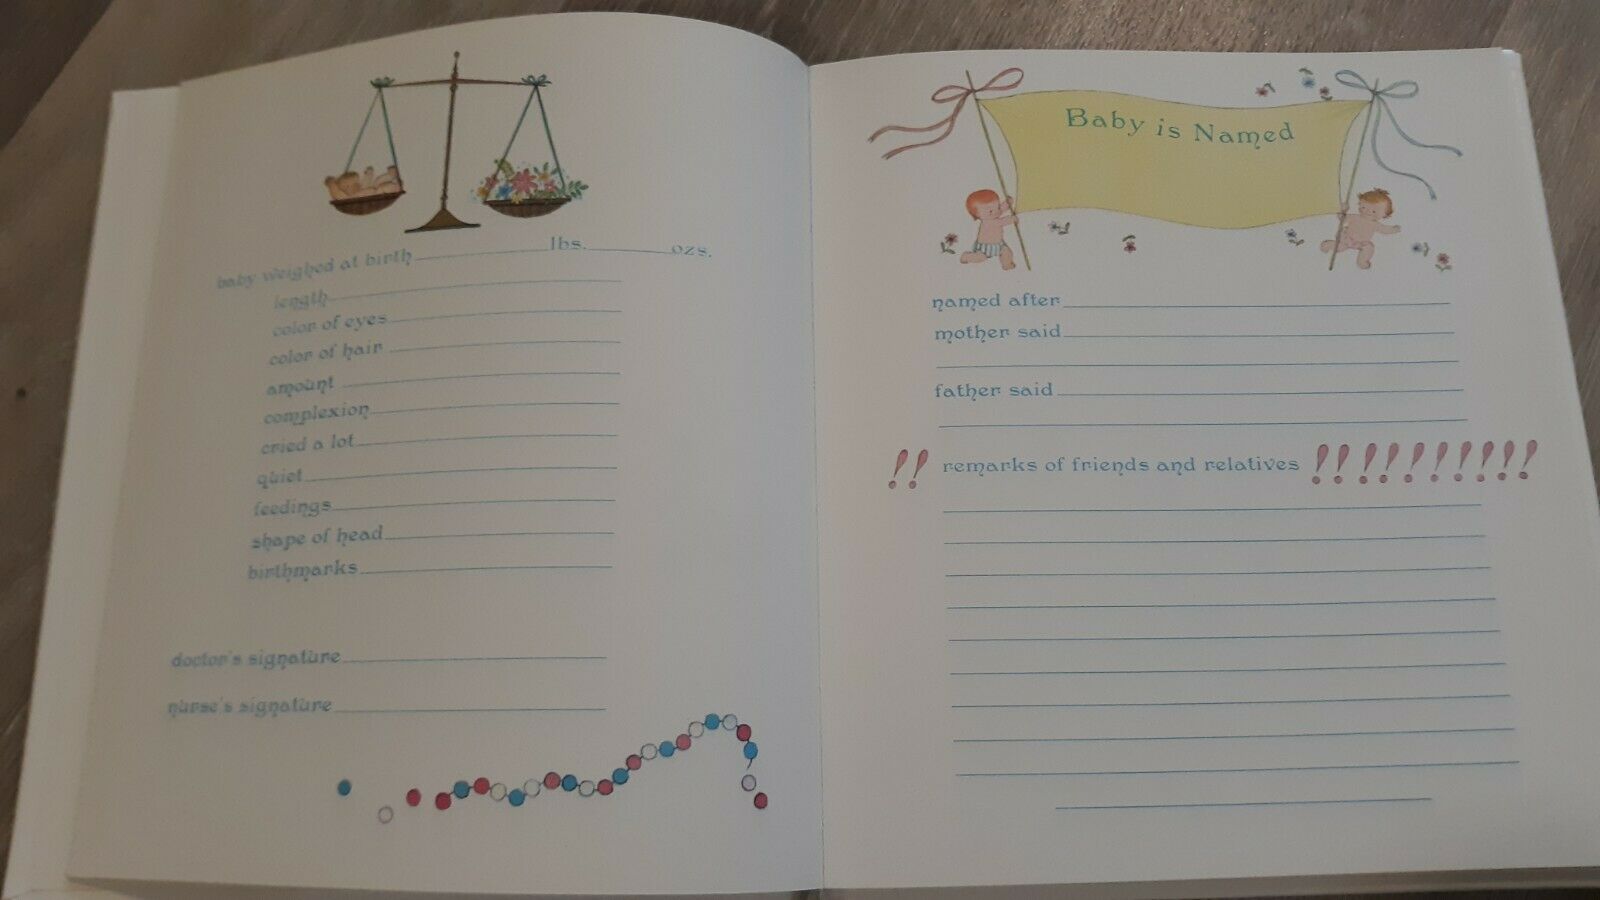 baby weighed at birth lbs. ozs.
length
color of eyes
color of hair
amount
complexion
cried a lot
quiet
feedings
shape of head
birthmarks
doctor's signature
nurse's signature
Baby is Named
named after
mother said
father said
!! remarks of friends and relatives !!!!!!!!!!